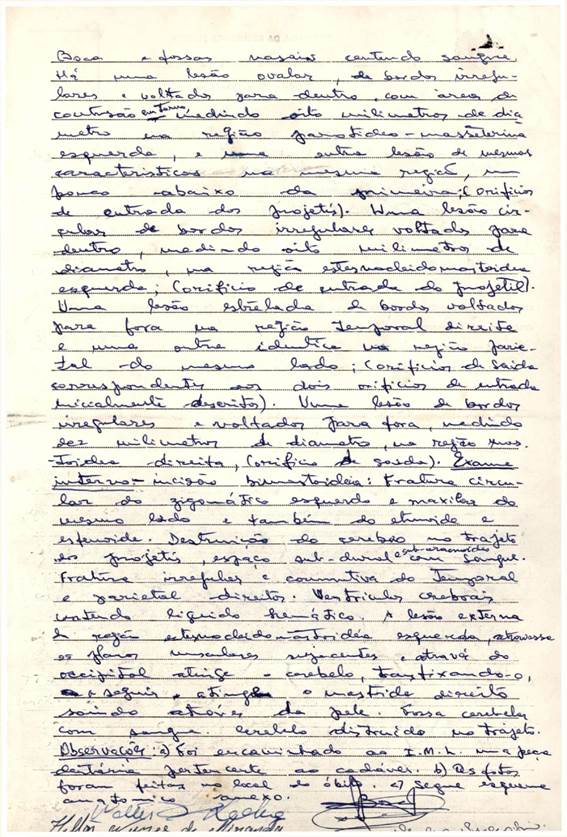 Boca e fossas nasais contendo sangue
Há uma lesão ovalar, de bordos irregu-
lares e voltados para dentro, com áreas de
contusão em torno, medindo oito milimetros de diâ
metro na região parotideo-massèterina
esquerda, e uma outra lesão de mesmas
caracteristicas na mesma região, um
pouco abaixo da primeira; (orificios
de entrada dos projetís). Uma lesão cir-
cular de bordos irregulares voltados para
dentro, medindo oito milimetros de
diametro, na região esternocleidomastoidea
esquerda; (orificio de entrada do projetil).
Uma lesão estrelada de bordos voltados
para fora na região temporal direita
e uma outra identica na região parie-
tal do mesmo lado; (orificios de saida
correspondentes aos dois orificios de entrada
inicialmente descritos). Uma lesão de bordos
irregulares e voltados para fora, medindo
dez milimetros de diametro, na região mas-
toidea direita, (orificio de saida). Exame
interno - incisão bimastoidéia: Fratura circu-
lar do zigomático esquerdo e maxilar do
mesmo lado e também do etmoide e
esfenoide. Destruição do cerebro no trajeto
dos projetís, espaço sub-dural e sub-aracnoideo com sangue.
Fratura irregular e cominutiva do temporal
e parietal direitos. Ventriculos cerebrais
contendo liquido hemático. A lesão externa
da região esternocleidomastoidéa esquerda, atravessa
os planos musculares subjacentes e através do
occipital atinge o cerebelo, transfixando-o,
e a seguir atinge o mastoide direito
saindo através da pele. Fossa cerebelar
com sangue. Cerebelo destruido no trajeto.
Observações: a) Foi encaminhado ao I.M.L. uma peça
dentária pertencente ao cadáver. b) As fotos
foram feitas no local do óbito. c) Segue esquema
anatomico anexo.